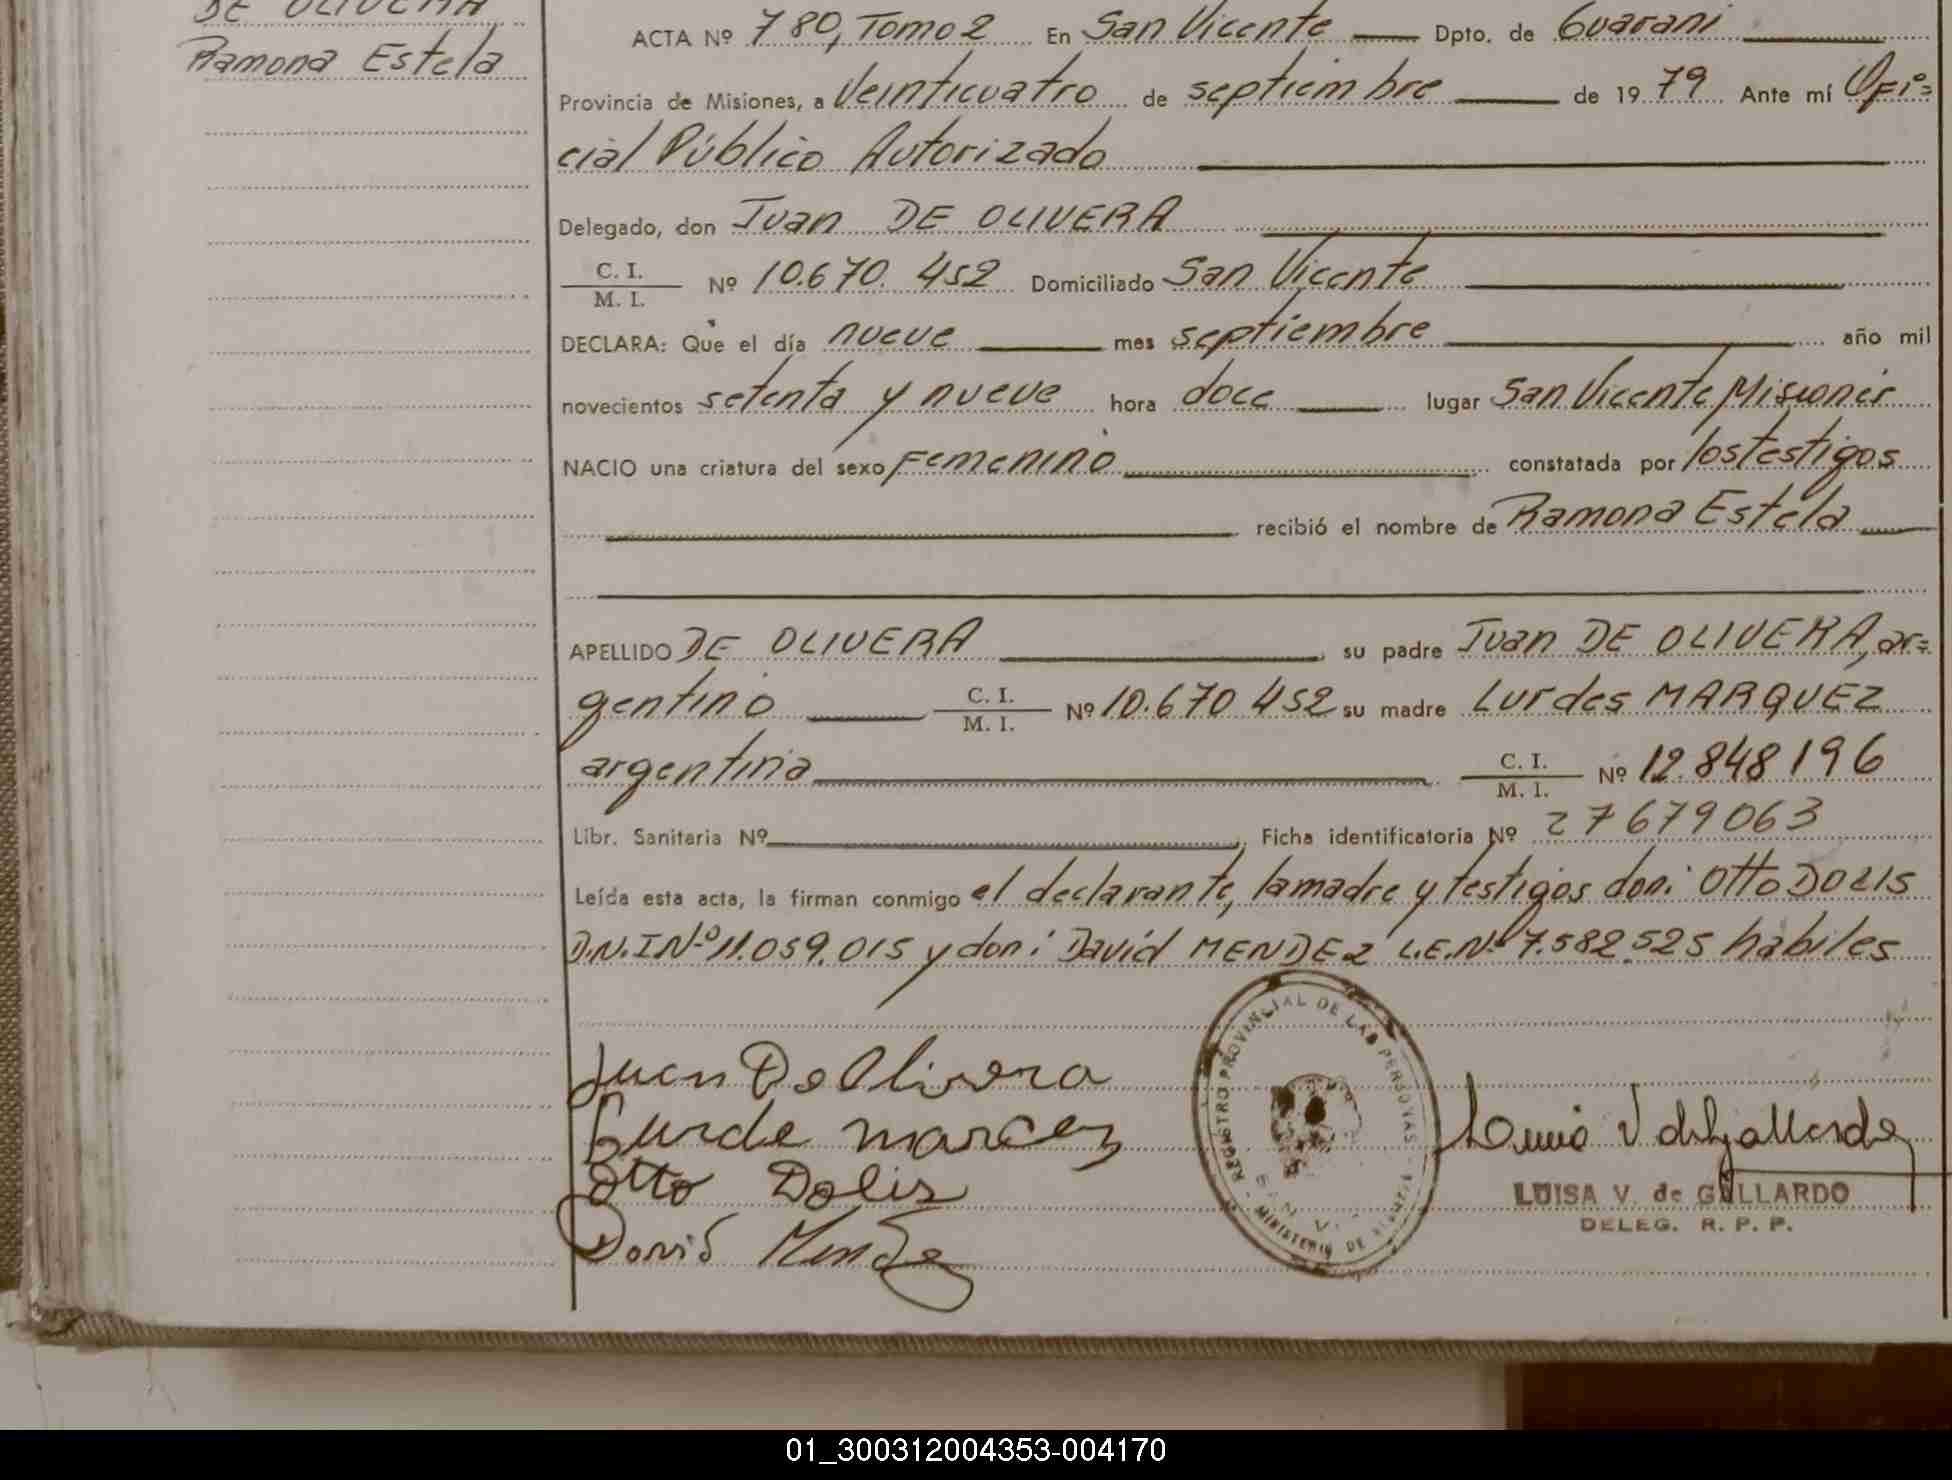 DE OLIVERA
Ramona Estela
ACTA Nº 780, Tomo 2 En San Vicente Dpto. de Guarani
Provincia de Misiones, a Veinticuatro de septiembre de 1979 Ante mí Ofi=
cial Público Autorizado
Delegado, don Juan DE OLIVERA
C. I.
M. I. Nº 10.670.452 Domiciliado San Vicente
DECLARA: Que el día nueve mes septiembre año mil
novecientos setenta y nueve hora doce lugar San Vicente Misiones
NACIO una criatura del sexo Femenino constatada por los testigos
recibió el nombre de Ramona Estela
APELLIDO DE OLIVERA su padre Juan DE OLIVERA, ar=
gentino C. I. M. I. Nº 10.670 452 su madre Lurdes MARQUEZ
argentina C. I. M. I. Nº 12.848196
Libr. Sanitaria Nº Ficha identificatoria Nº 27679063
Leída esta acta, la firman conmigo el declarante, la madre y testigos don: Otto DOLIS
D.N.I Nº 11.059.015 y don: David MENDEZ L.E.Nº 7.582.525 habiles
Juan De Olivera
Lurde marcez
Otto Dolis
David Mendez
REGISTRO PROVINCIAL DE LAS PERSONAS
MINISTERIO DE
LUISA V. de GALLARDO
DELEG. R. P. P.
01_300312004353-004170